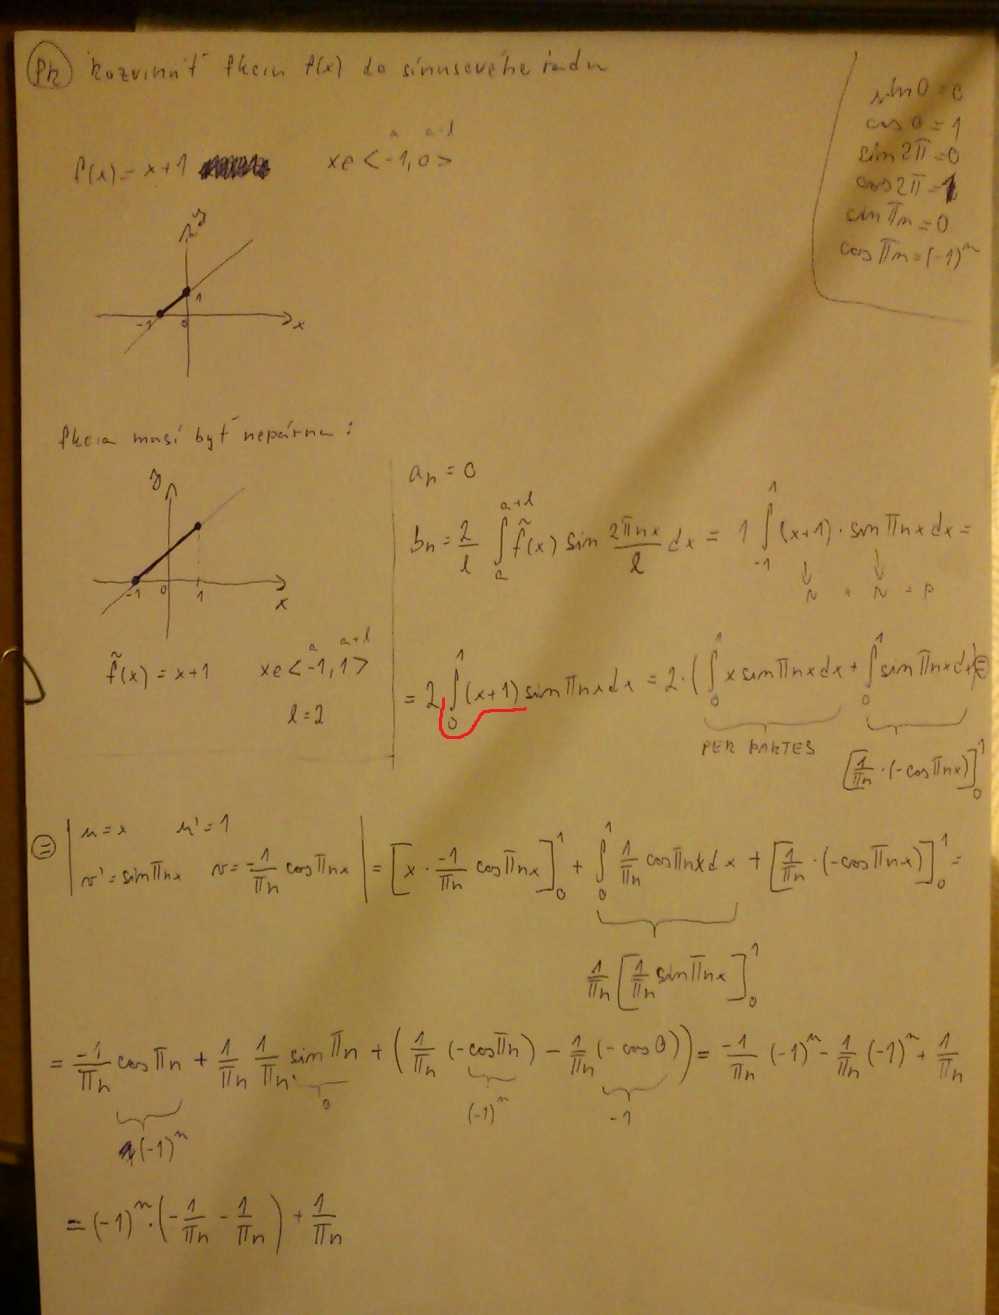 Pr Rozvinúť fkciu f(x) do sínusového radu
sin0 = 0
cos0 = 1
sin2π = 0
cos2π = 1
sinπn = 0
cosπn = (-1)^n
f(x) = x+1 x∈<-1,0>
a a+l
y
1
-1 0 x
fkcia musí byť nepárna:
y
-1 0 1 x
f̃(x) = x+1 x∈<-1,1>
a a+l
l=2
a_n = 0
b_n = 2/l ∫_a^{a+l} f̃(x) sin 2πnx/l dx = 1 ∫_{-1}^1 (x+1)·sinπnx dx =
N · N = P
= 2 ∫_0^1 (x+1) sinπnx dx = 2·(∫_0^1 x sinπnx dx + ∫_0^1 sinπnx dx) =
PER PARTES
[1/πn ·(-cosπnx)]_0^1
= | u=x u'=1
v'=sinπnx v=-1/πn cosπnx | = [x · -1/πn cosπnx]_0^1 + ∫_0^1 1/πn cosπnx dx + [1/πn ·(-cosπnx)]_0^1 =
1/πn [1/πn sinπnx]_0^1
= -1/πn cosπn + 1/πn 1/πn sinπn + (1/πn (-cosπn) - 1/πn (-cos0)) = -1/πn (-1)^n - 1/πn (-1)^n + 1/πn
0 (-1)^n -1
(-1)^n
= (-1)^n ·(-1/πn - 1/πn) + 1/πn